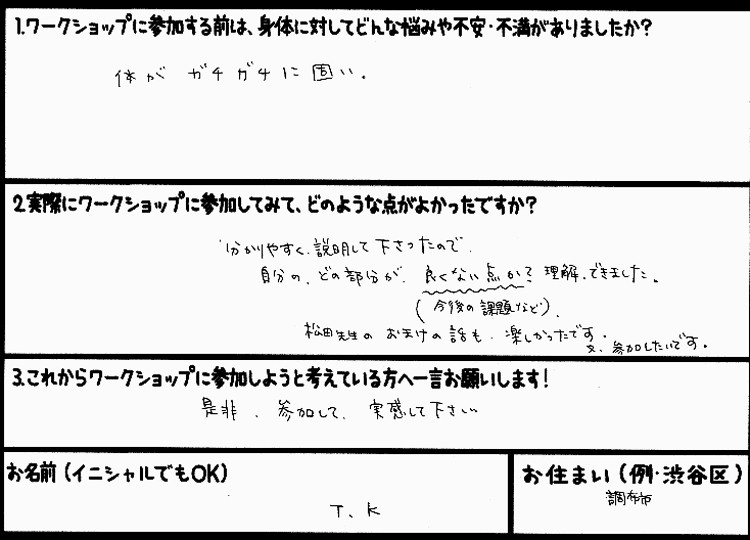 1.ワークショップに参加する前は、身体に対してどんな悩みや不安・不満がありましたか?
体が ガチガチに固い。
2.実際にワークショップに参加してみて、どのような点がよかったですか?
分かりやすく、説明して下さったので、
自分の、どの部分が、良くない点か?理解、できました。
(今後の課題など)。
松田先生の おまけの話も、楽しかったです。
又、参加したいです。
3.これからワークショップに参加しようと考えている方へ一言お願いします!
是非、参加して、実感して下さい
お名前(イニシャルでもOK)
T、K
お住まい(例・渋谷区)
調布市